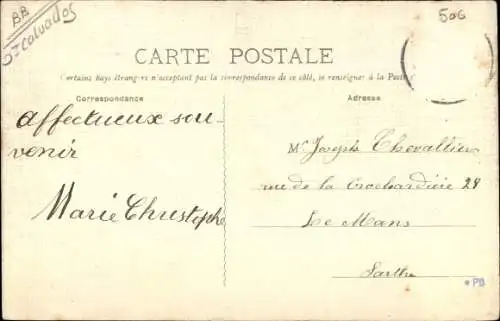 BB
Calvados
506
CARTE POSTALE
Certains Pays étrangers n'acceptent pas la correspondance de ce côté, se renseigner à la Poste
Correspondance
Adresse
affectueux sou-
venir
Marie Christophe
Mr Joseph Chevallier
rue de la Crochardière 28
Le Mans
Sarthe
PB